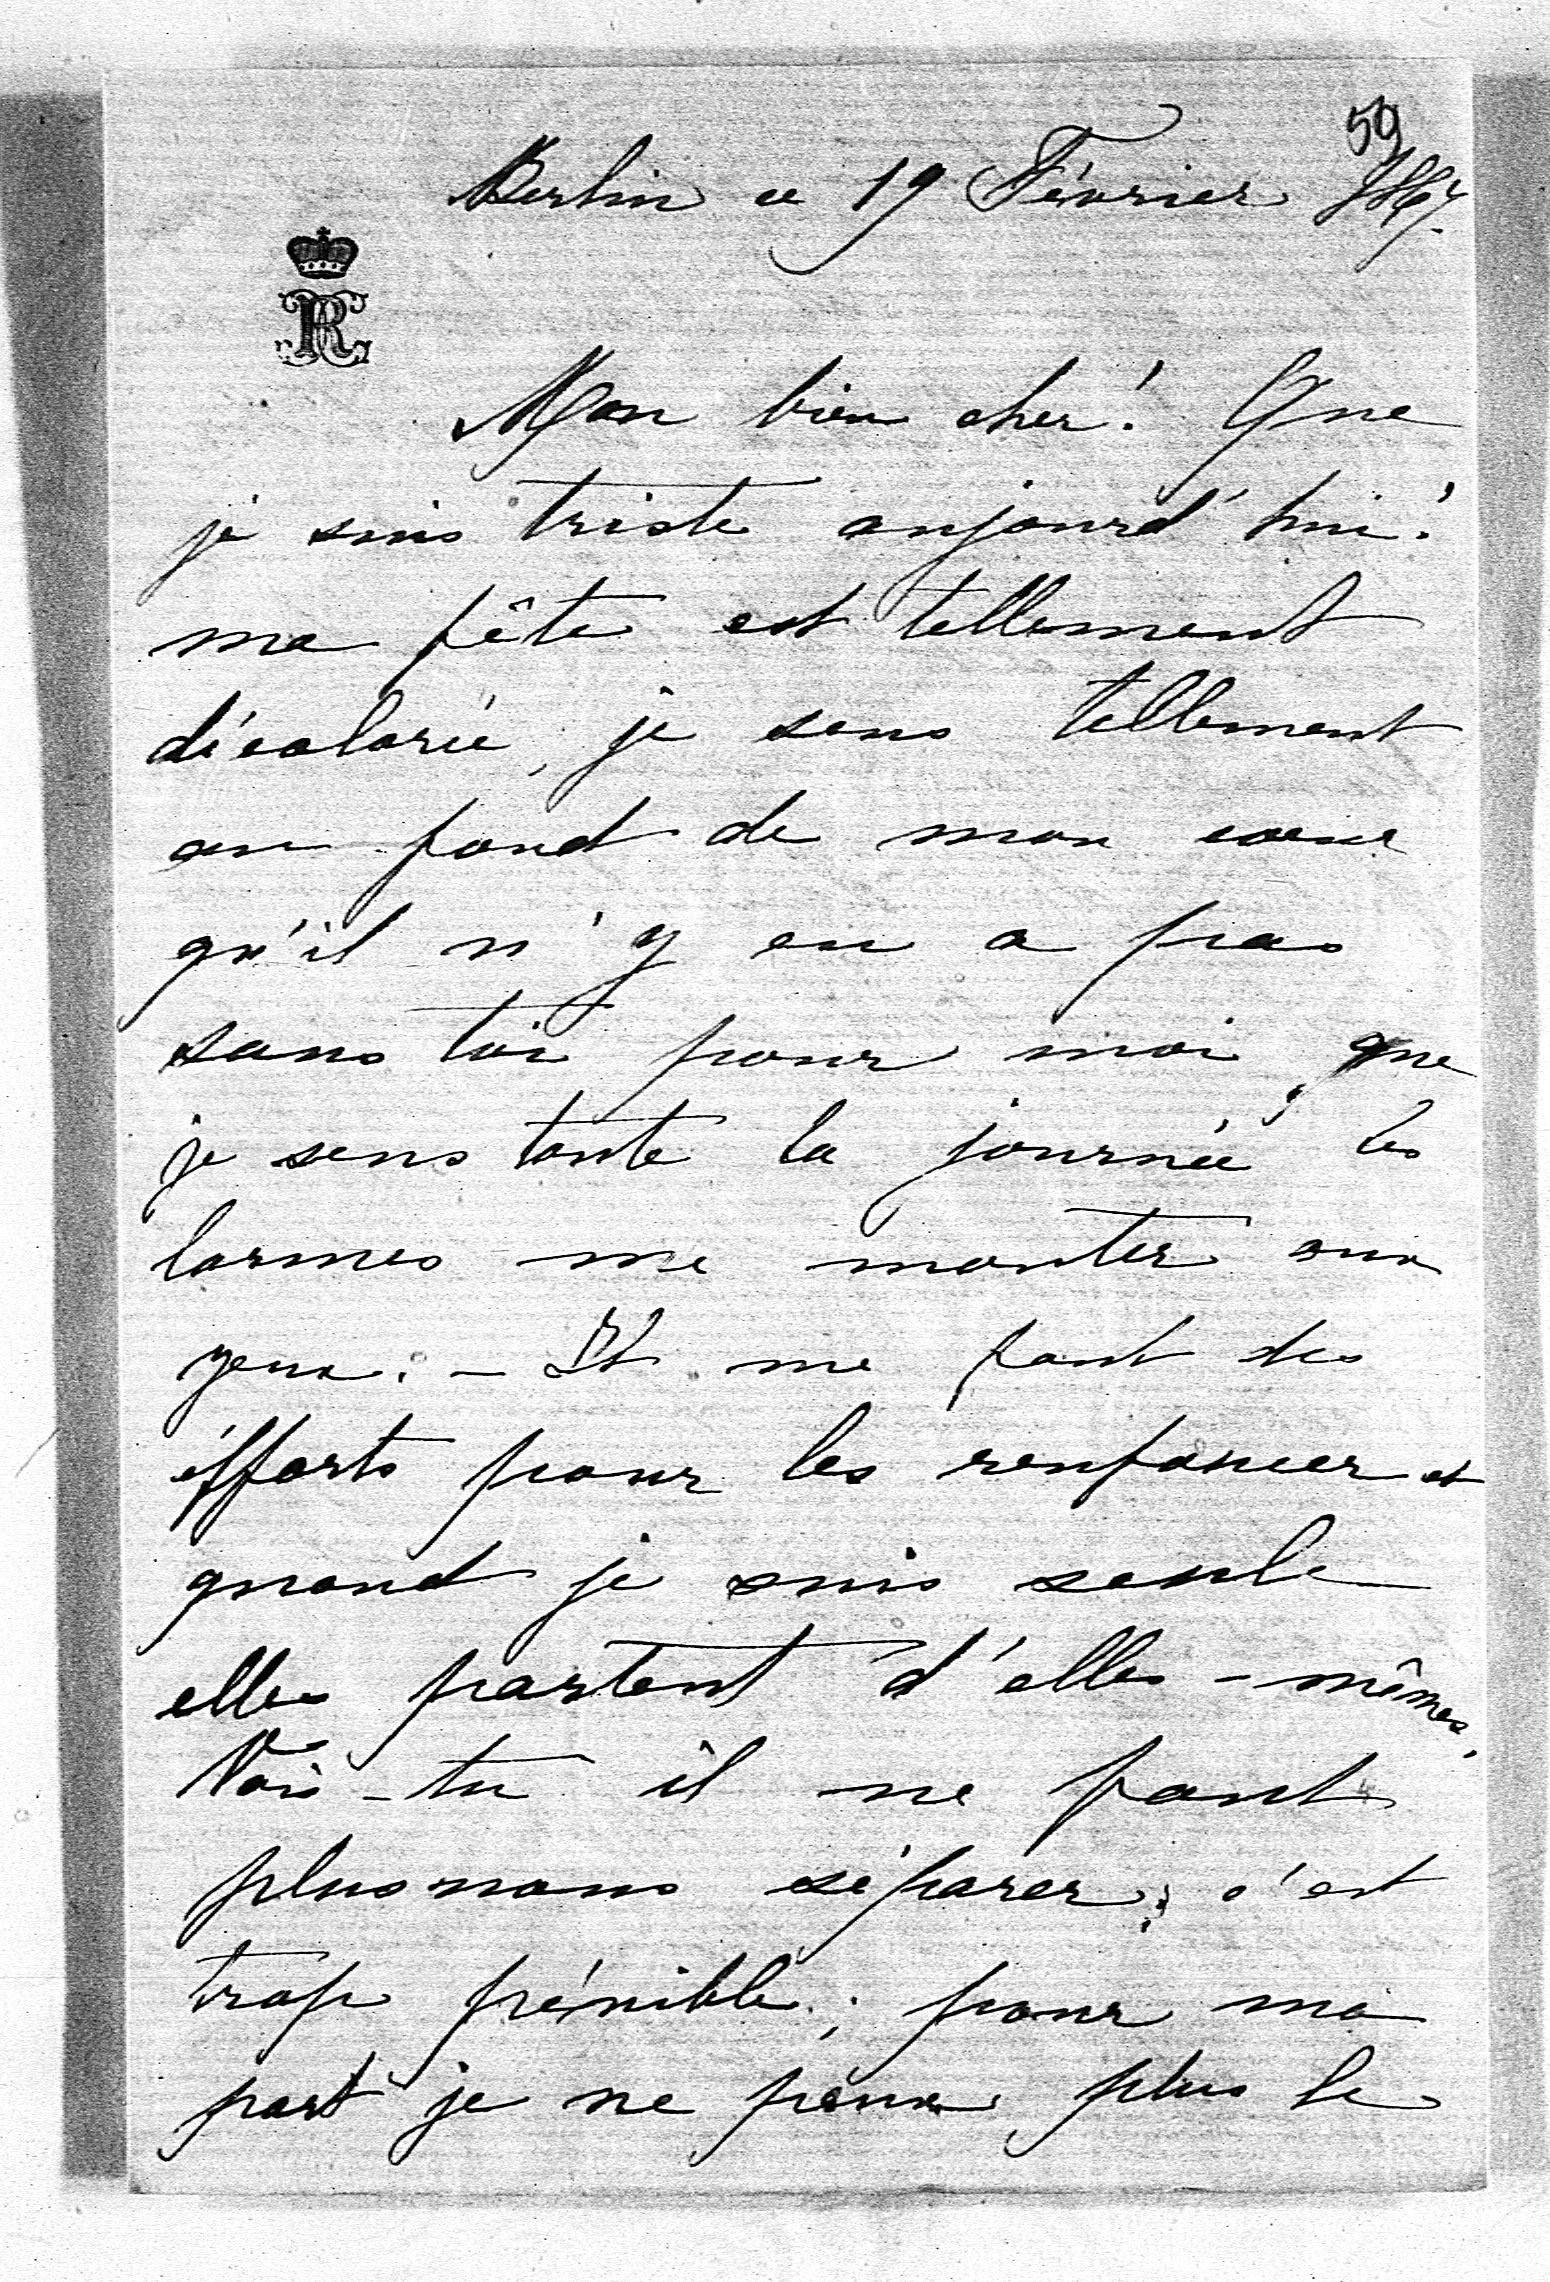 59
Berlin ce 19 Février 1867.
Mon bien cher! Que
je suis triste aujourd'hui!
ma fête est tellement
décolorée, je sens tellement
au fond de mon coeur
qu'il n'y en a pas
sans toi pour moi, que
je sens toute la journée les
larmes me monter aux
yeux. – Il me faut des
éfforts pour les renfoncer et
quand je suis seule
elles partent d'elles-mêmes.
Vois-tu il ne faut
plus nous séparer; c'est
trop pénible; pour ma
part je ne peux plus le